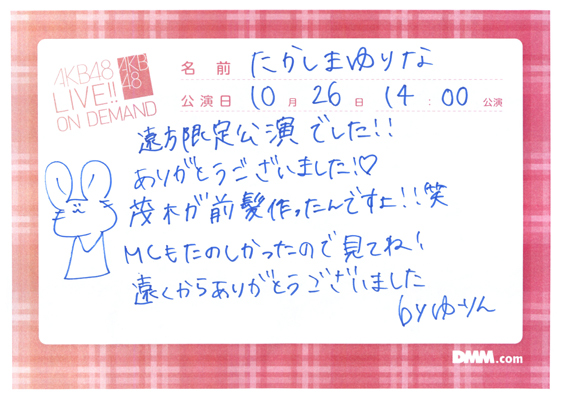 AKB48
LIVE!!
ON DEMAND
AKB
48
名前 たかしまゆりな
公演日 10月 26日 14:00 公演
遠方限定公演でした!!
ありがとうございました!♡
茂木が前髪作ったんですよ!!笑
MCもたのしかったので見てね!
遠くからありがとうございました
byゆーりん
DMM.com